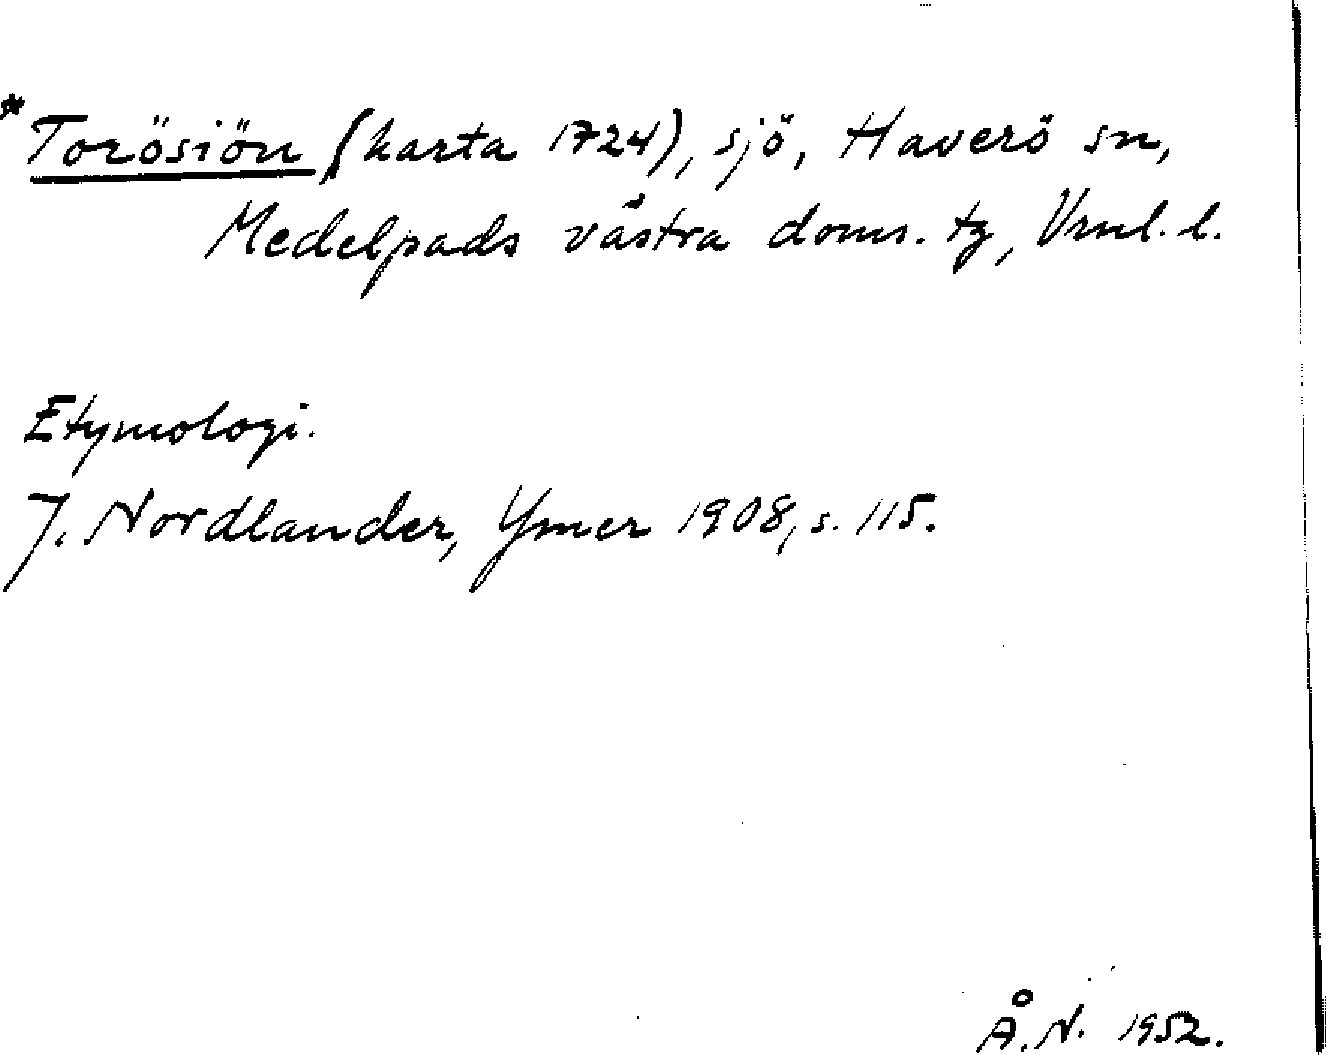 *Torösiön (karta 1724), sjö, Haverö sn,
Medelpads västra doms. tg, Vrnl. l.
Etymologi.
J. Nordlander, Ymer 1908, s. 115.
Å.N. 1952.